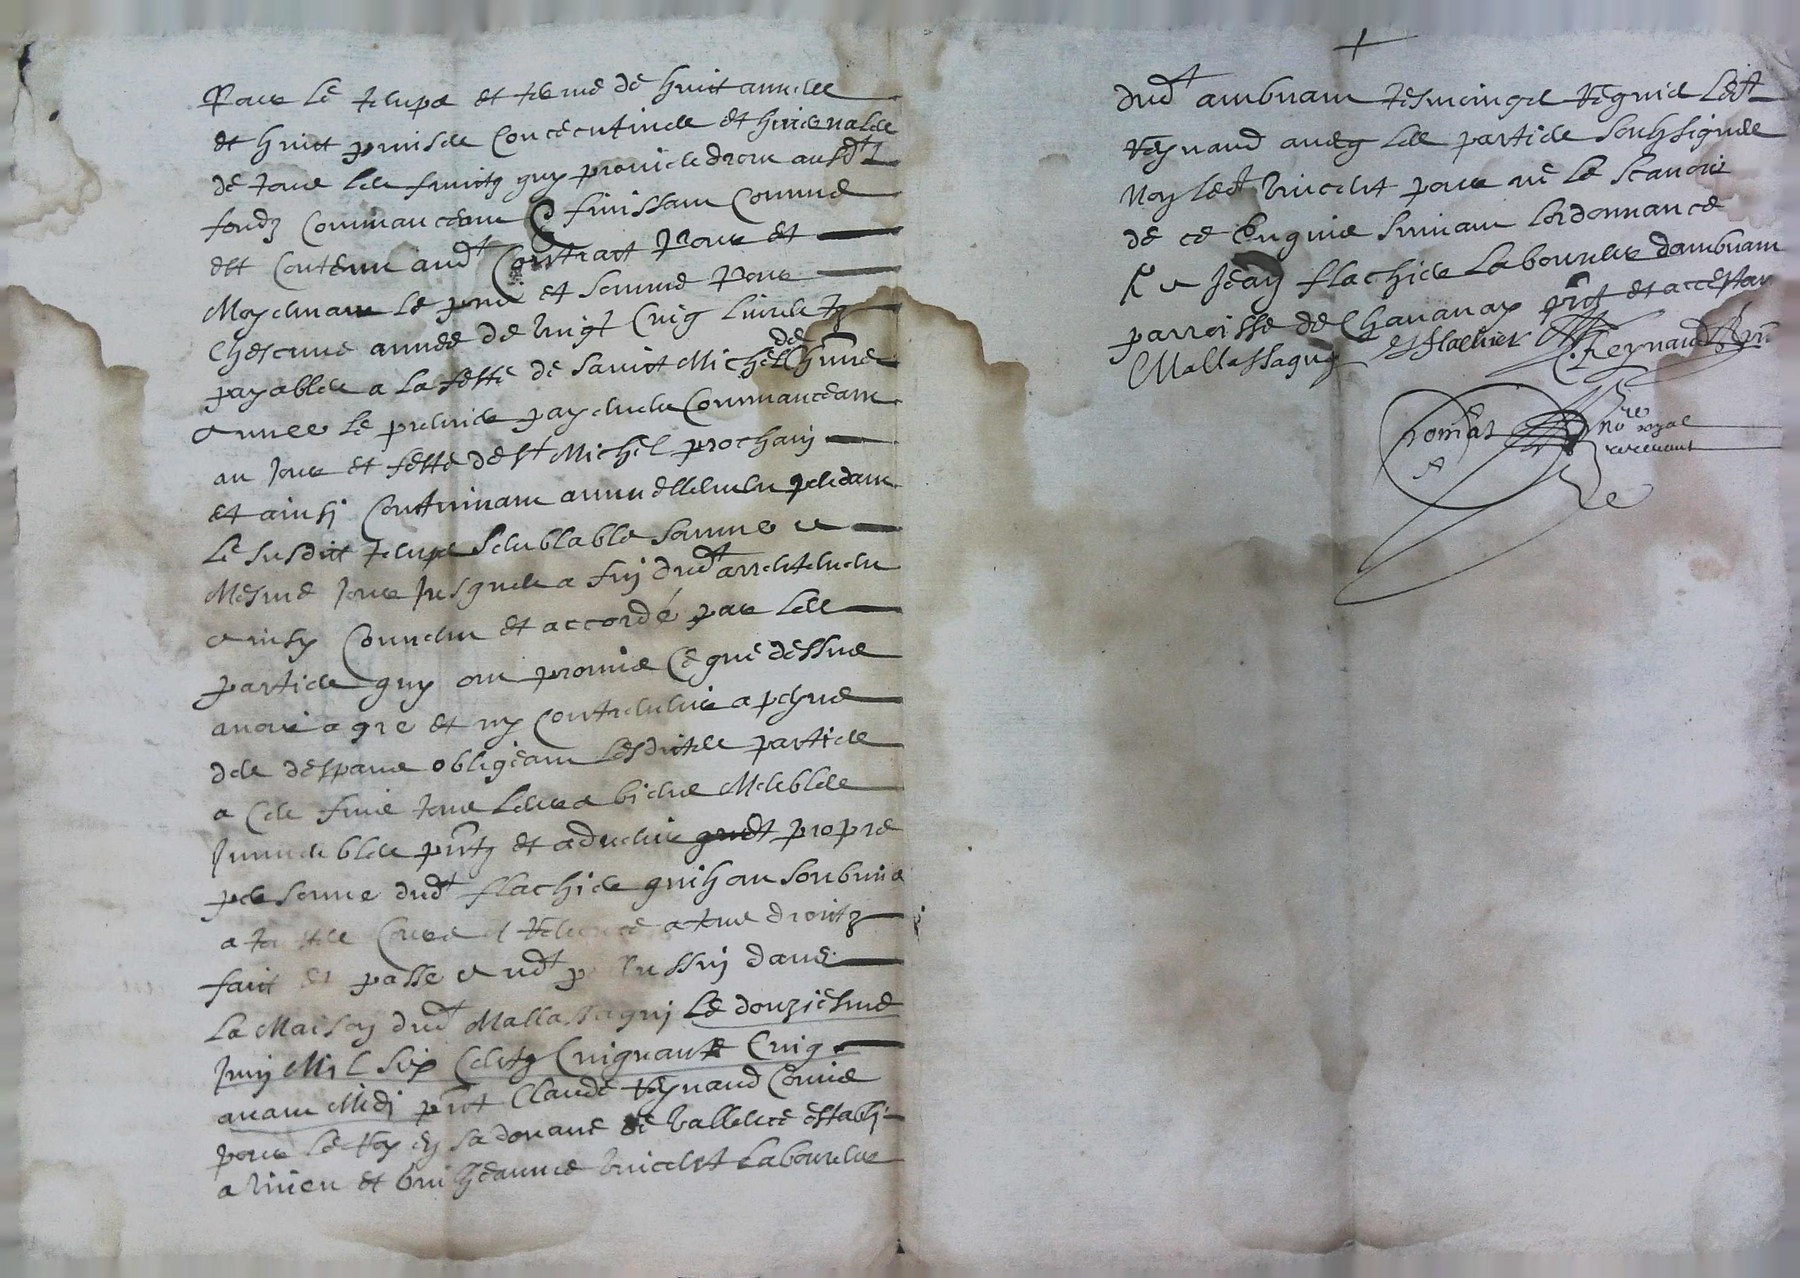 Pour le temps et terme de huict annees
et huict prinses consecutives et
de tous les fruitz quy proviedront ausdtz
fondz commanceant & finissant comme
est contenu audt contract pour et
Moyenant le pris et somme pour
chescune annee de vingt cinq livres tz
payables a la feste de sainct Michel de chune
annee le premier payement commanceant
au jour et feste de st Michel prochain
et ainsi continuant annuellement pendant
le susdict temps semblable somme a
Mesme jour jusques a fin dudt arrentement
ainsy convenu et accordé par les
parties quy ont promis ce que dessus
avoir a gre et ny contrevenir a peyne
des despans obligeant lesdites parties
a ces fins tous leurs biens Meubles
Immeubles pntz et advenir propre
personne dudt flachier soubmis
a toutes cours et renoncé a tous droitz
fait et passe audt dans
la Maison dudt Mallassaguy le douziesme
Juin Mil six centz cinquante cinq
avant Midi pnt Claude Reynaud commis
pour le Roy en sa douane de Vallence establi
a vireu et Guilheaume Vincent laboureur
dudt ambuant tesmoings requis ledt
Reynaud aveq les parties soubsignes
Non ledt Vincent pour ne le scavoir
de ce enquis suivant lordonnance
Jean flachier laboureur dambuant
parroisse de Chavanay pnt et acceptant
Mallassaguy Flachier C. Reynaud pnt
nore royal
recevant